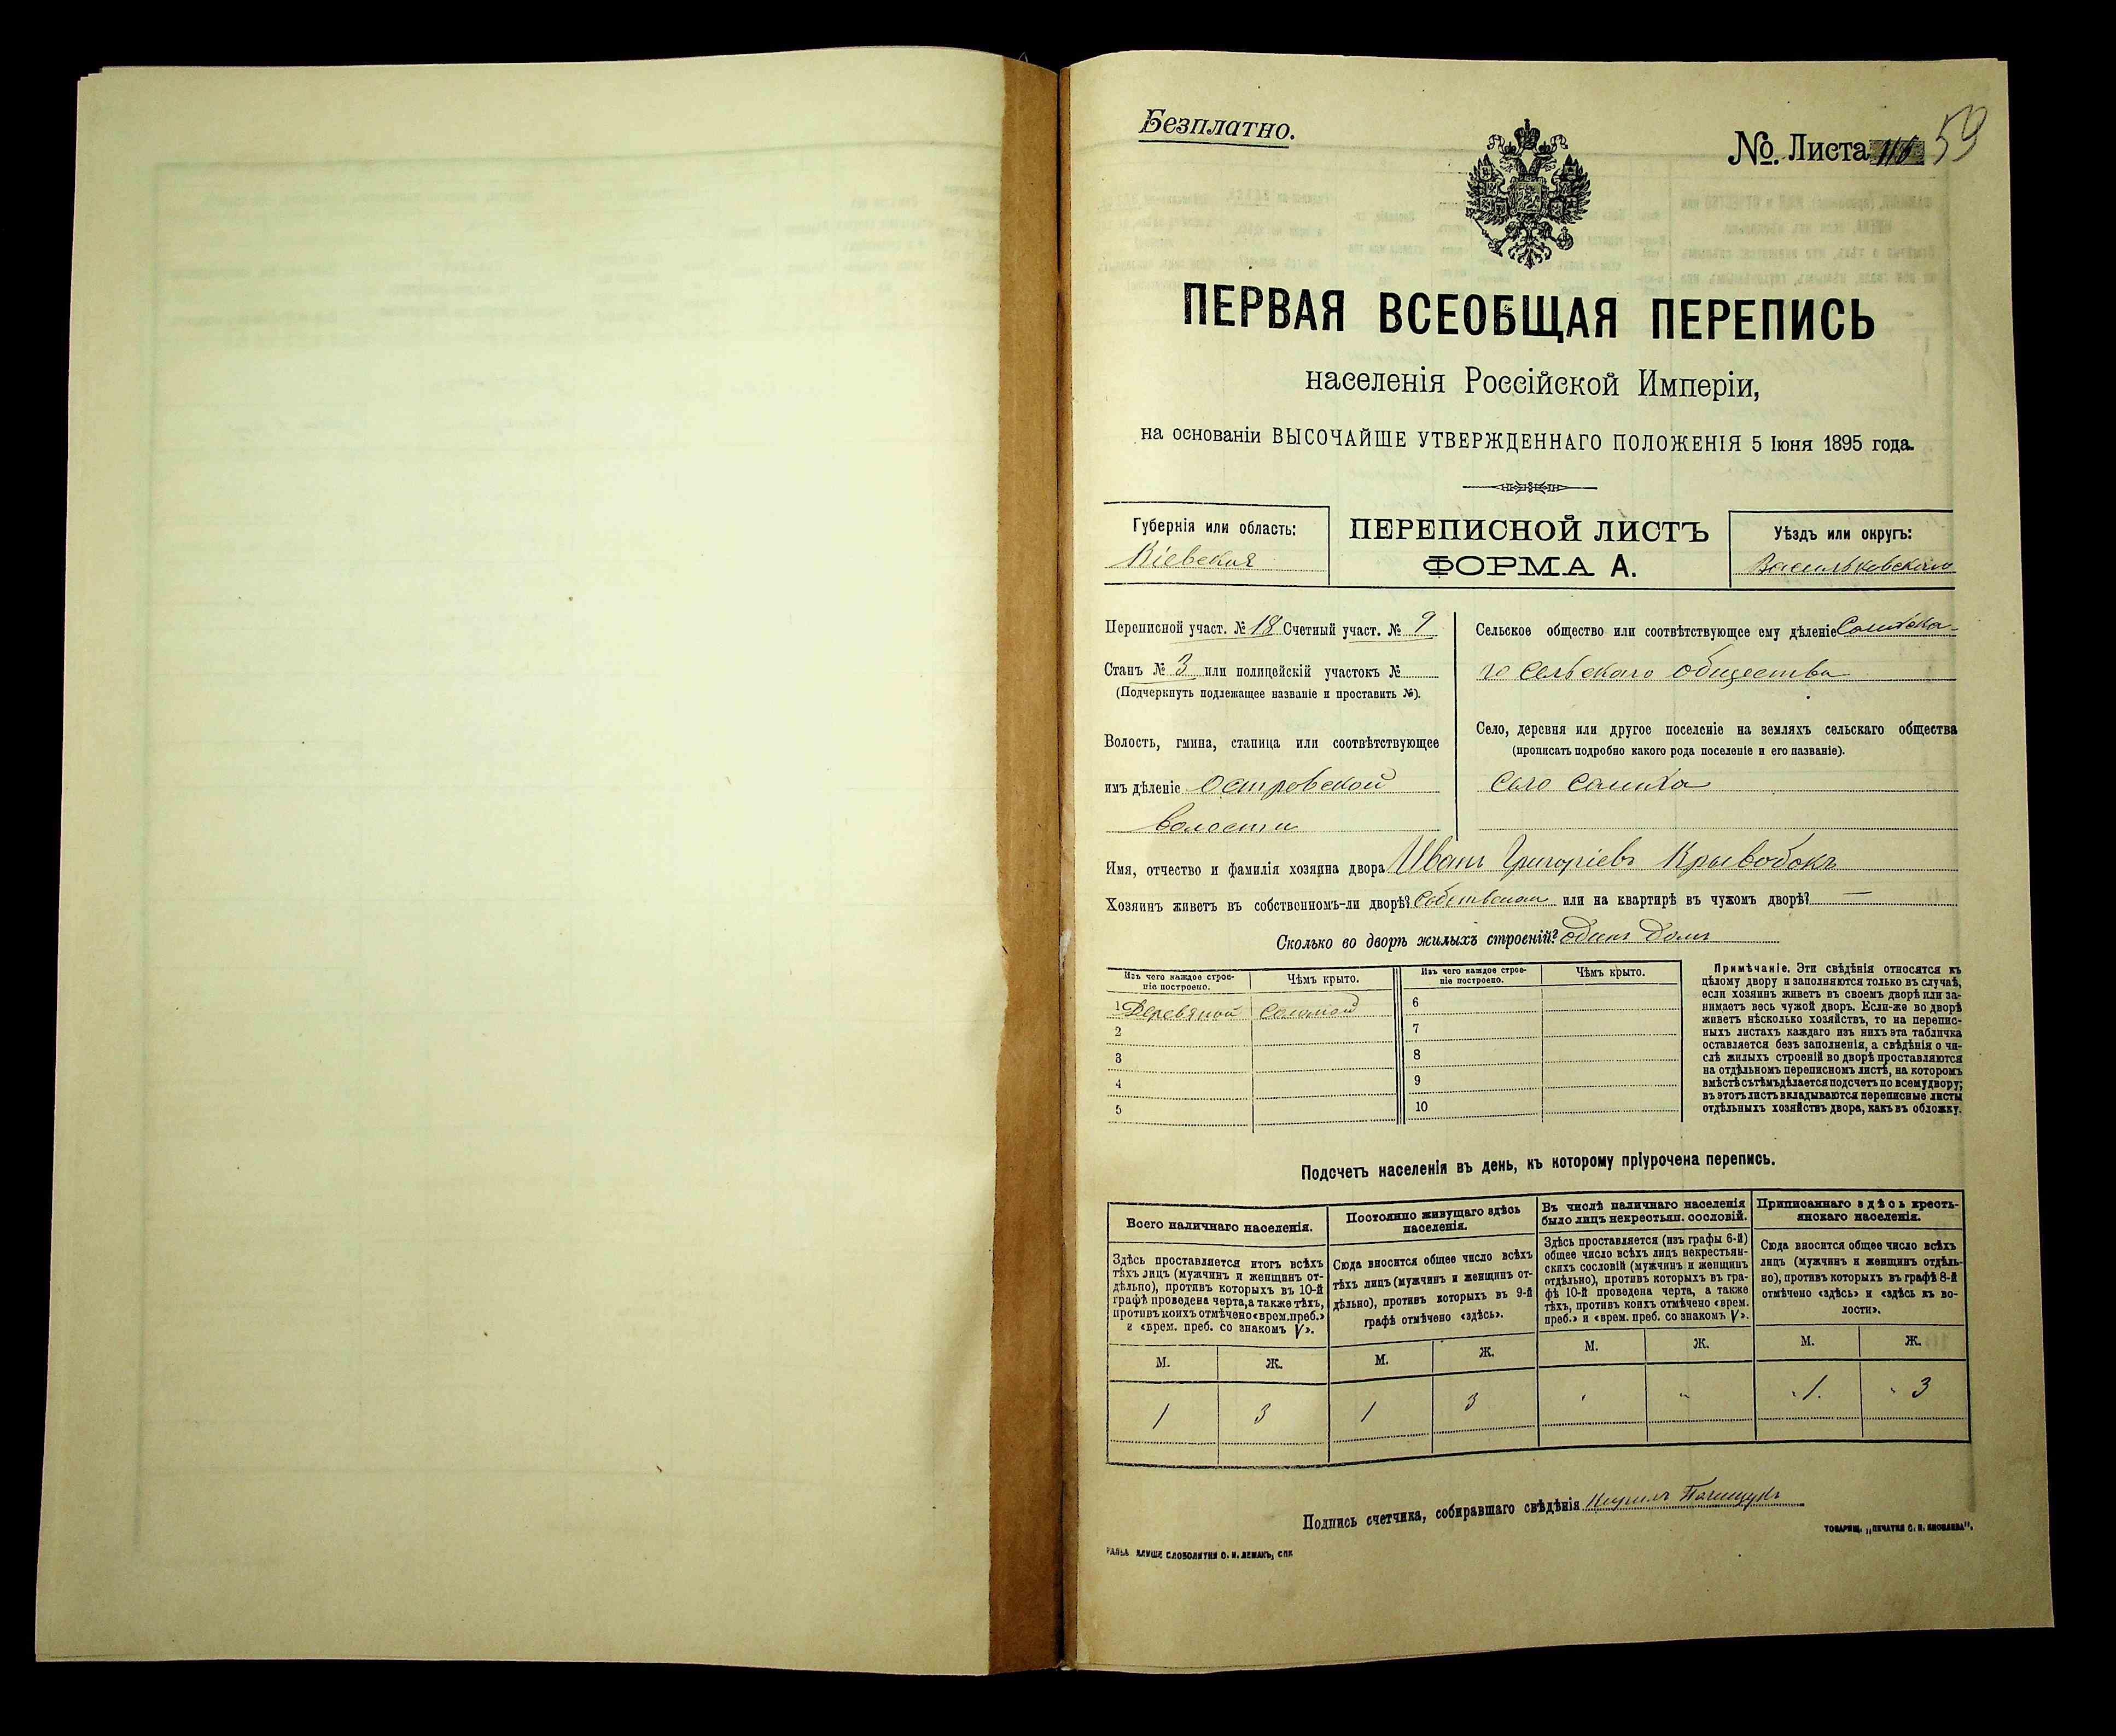 Безплатно.
№. Листа 59
ПЕРВАЯ ВСЕОБЩАЯ ПЕРЕПИСЬ
населенія Россійской Имперіи,
на основаніи ВЫСОЧАЙШЕ УТВЕРЖДЕННАГО ПОЛОЖЕНІЯ 5 Іюня 1895 года.
Губернія или область:
Кіевская
ПЕРЕПИСНОЙ ЛИСТЪ
ФОРМА А.
Уѣздъ или округъ:
Васильковскаго
Переписной участ. № 18 Счетный участ. № 9
Станъ № 3 или полицейскій участокъ №
(Подчеркнуть подлежащее названіе и проставить №).
Волость, гмина, станица или соотвѣтствующее
имъ дѣленіе Островской
волости
Сельское общество или соотвѣтствующее ему дѣленіе
го сельскаго общества
Село, деревня или другое поселеніе на земляхъ сельскаго общества
(прописать подробно какого рода поселеніе и его названіе).
село
Имя, отчество и фамилія хозяина двора Иванъ Григоріевъ Крывобокъ
Хозяинъ живетъ въ собственномъ-ли дворѣ? или на квартирѣ въ чужомъ дворѣ? —
Сколько во дворѣ жилыхъ строеній? одинъ домъ
Изъ чего каждое строе-
ніе построено.
Чѣмъ крыто.
Изъ чего каждое строе-
ніе построено.
Чѣмъ крыто.
1 Деревяной соломой 6
2 7
3 8
4 9
5 10
Примѣчаніе. Эти свѣдѣнія относятся къ
цѣлому двору и заполняются только въ случаѣ,
если хозяинъ живетъ въ своемъ дворѣ или за-
нимаетъ весь чужой дворъ. Если-же во дворѣ
живетъ нѣсколько хозяйствъ, то на перепис-
ныхъ листахъ каждаго изъ нихъ эта табличка
оставляется безъ заполненія, а свѣдѣнія о чи-
слѣ жилыхъ строеній во дворѣ проставляются
на отдѣльномъ переписномъ листѣ, на которомъ
вмѣстѣ съ тѣмъ дѣлается подсчетъ по всему двору;
въ этотъ листъ вкладываются переписные листы
отдѣльныхъ хозяйствъ двора, какъ въ обложку.
Подсчетъ населенія въ день, къ которому пріурочена перепись.
Всего наличнаго населенія.
Здѣсь проставляется итогъ всѣхъ
тѣхъ лицъ (мужчинъ и женщинъ от-
дѣльно), противъ которыхъ въ 10-й
графѣ проведена черта, а также тѣхъ,
противъ коихъ отмѣчено «врем. преб.»
и «врем. преб. со знакомъ V».
Постоянно живущаго здѣсь
населенія.
Сюда вносится общее число всѣхъ
тѣхъ лицъ (мужчинъ и женщинъ от-
дѣльно), противъ которыхъ въ 9-й
графѣ отмѣчено «здѣсь».
Въ числѣ наличнаго населенія
было лицъ некрестьян. сословій.
Здѣсь проставляется (изъ графы 6-й)
общее число всѣхъ лицъ некрестьян-
скихъ сословій (мужчинъ и женщинъ
отдѣльно), противъ которыхъ въ гра-
фѣ 10-й проведена черта, а также
тѣхъ, противъ коихъ отмѣчено «врем.
преб.» и «врем. преб. со знакомъ V».
Приписаннаго здѣсь кресть-
янскаго населенія.
Сюда вносится общее число всѣхъ
лицъ (мужчинъ и женщинъ отдѣль-
но), противъ которыхъ въ графѣ 8-й
отмѣчено «здѣсь» и «здѣсь къ во-
лости».
М. Ж. М. Ж. М. Ж. М. Ж.
1 3 1 3 " " 1. 3
Подпись счетчика, собиравшаго свѣдѣнія
ТОВАРИЩ. „ПЕЧАТНЯ С. П. ЯКОВЛЕВА".